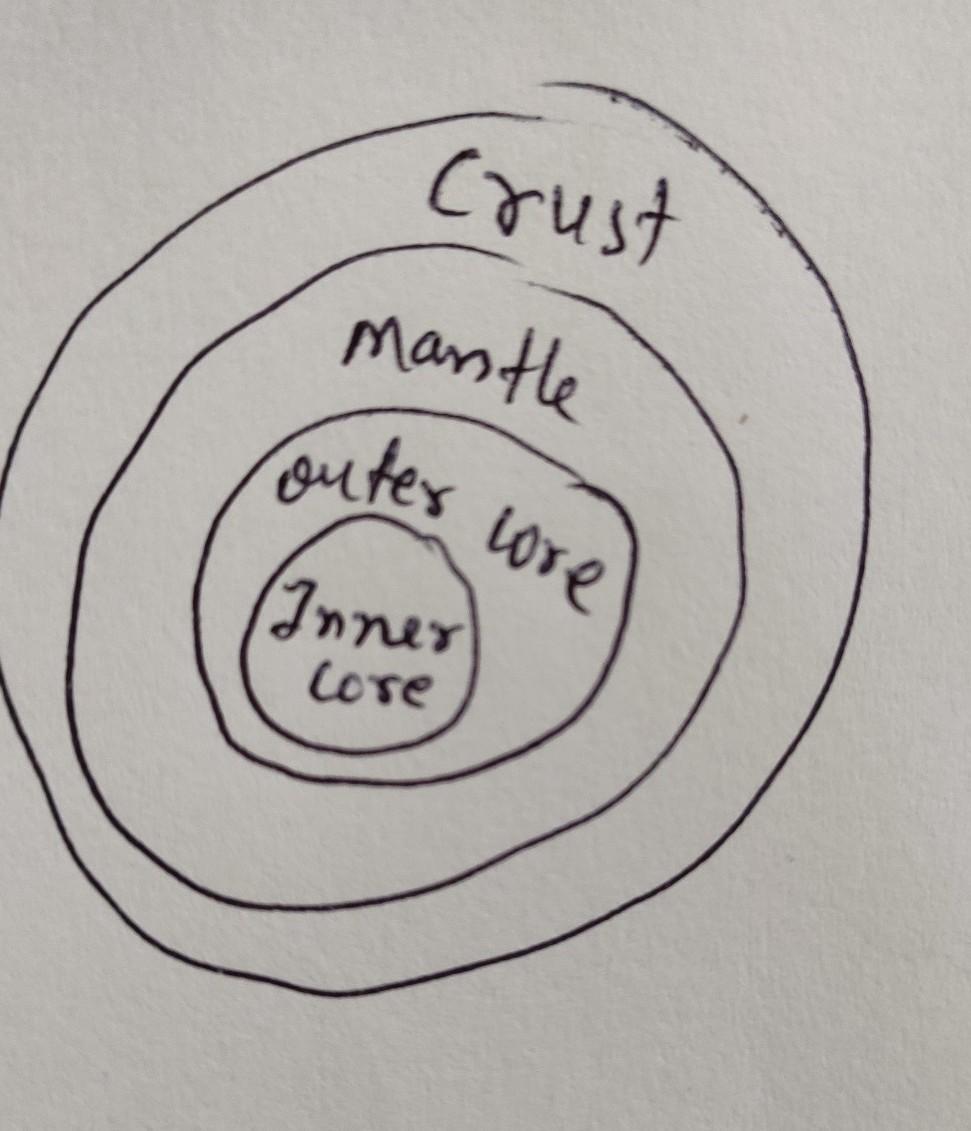 Crust
Mantle
outer core
Inner
core